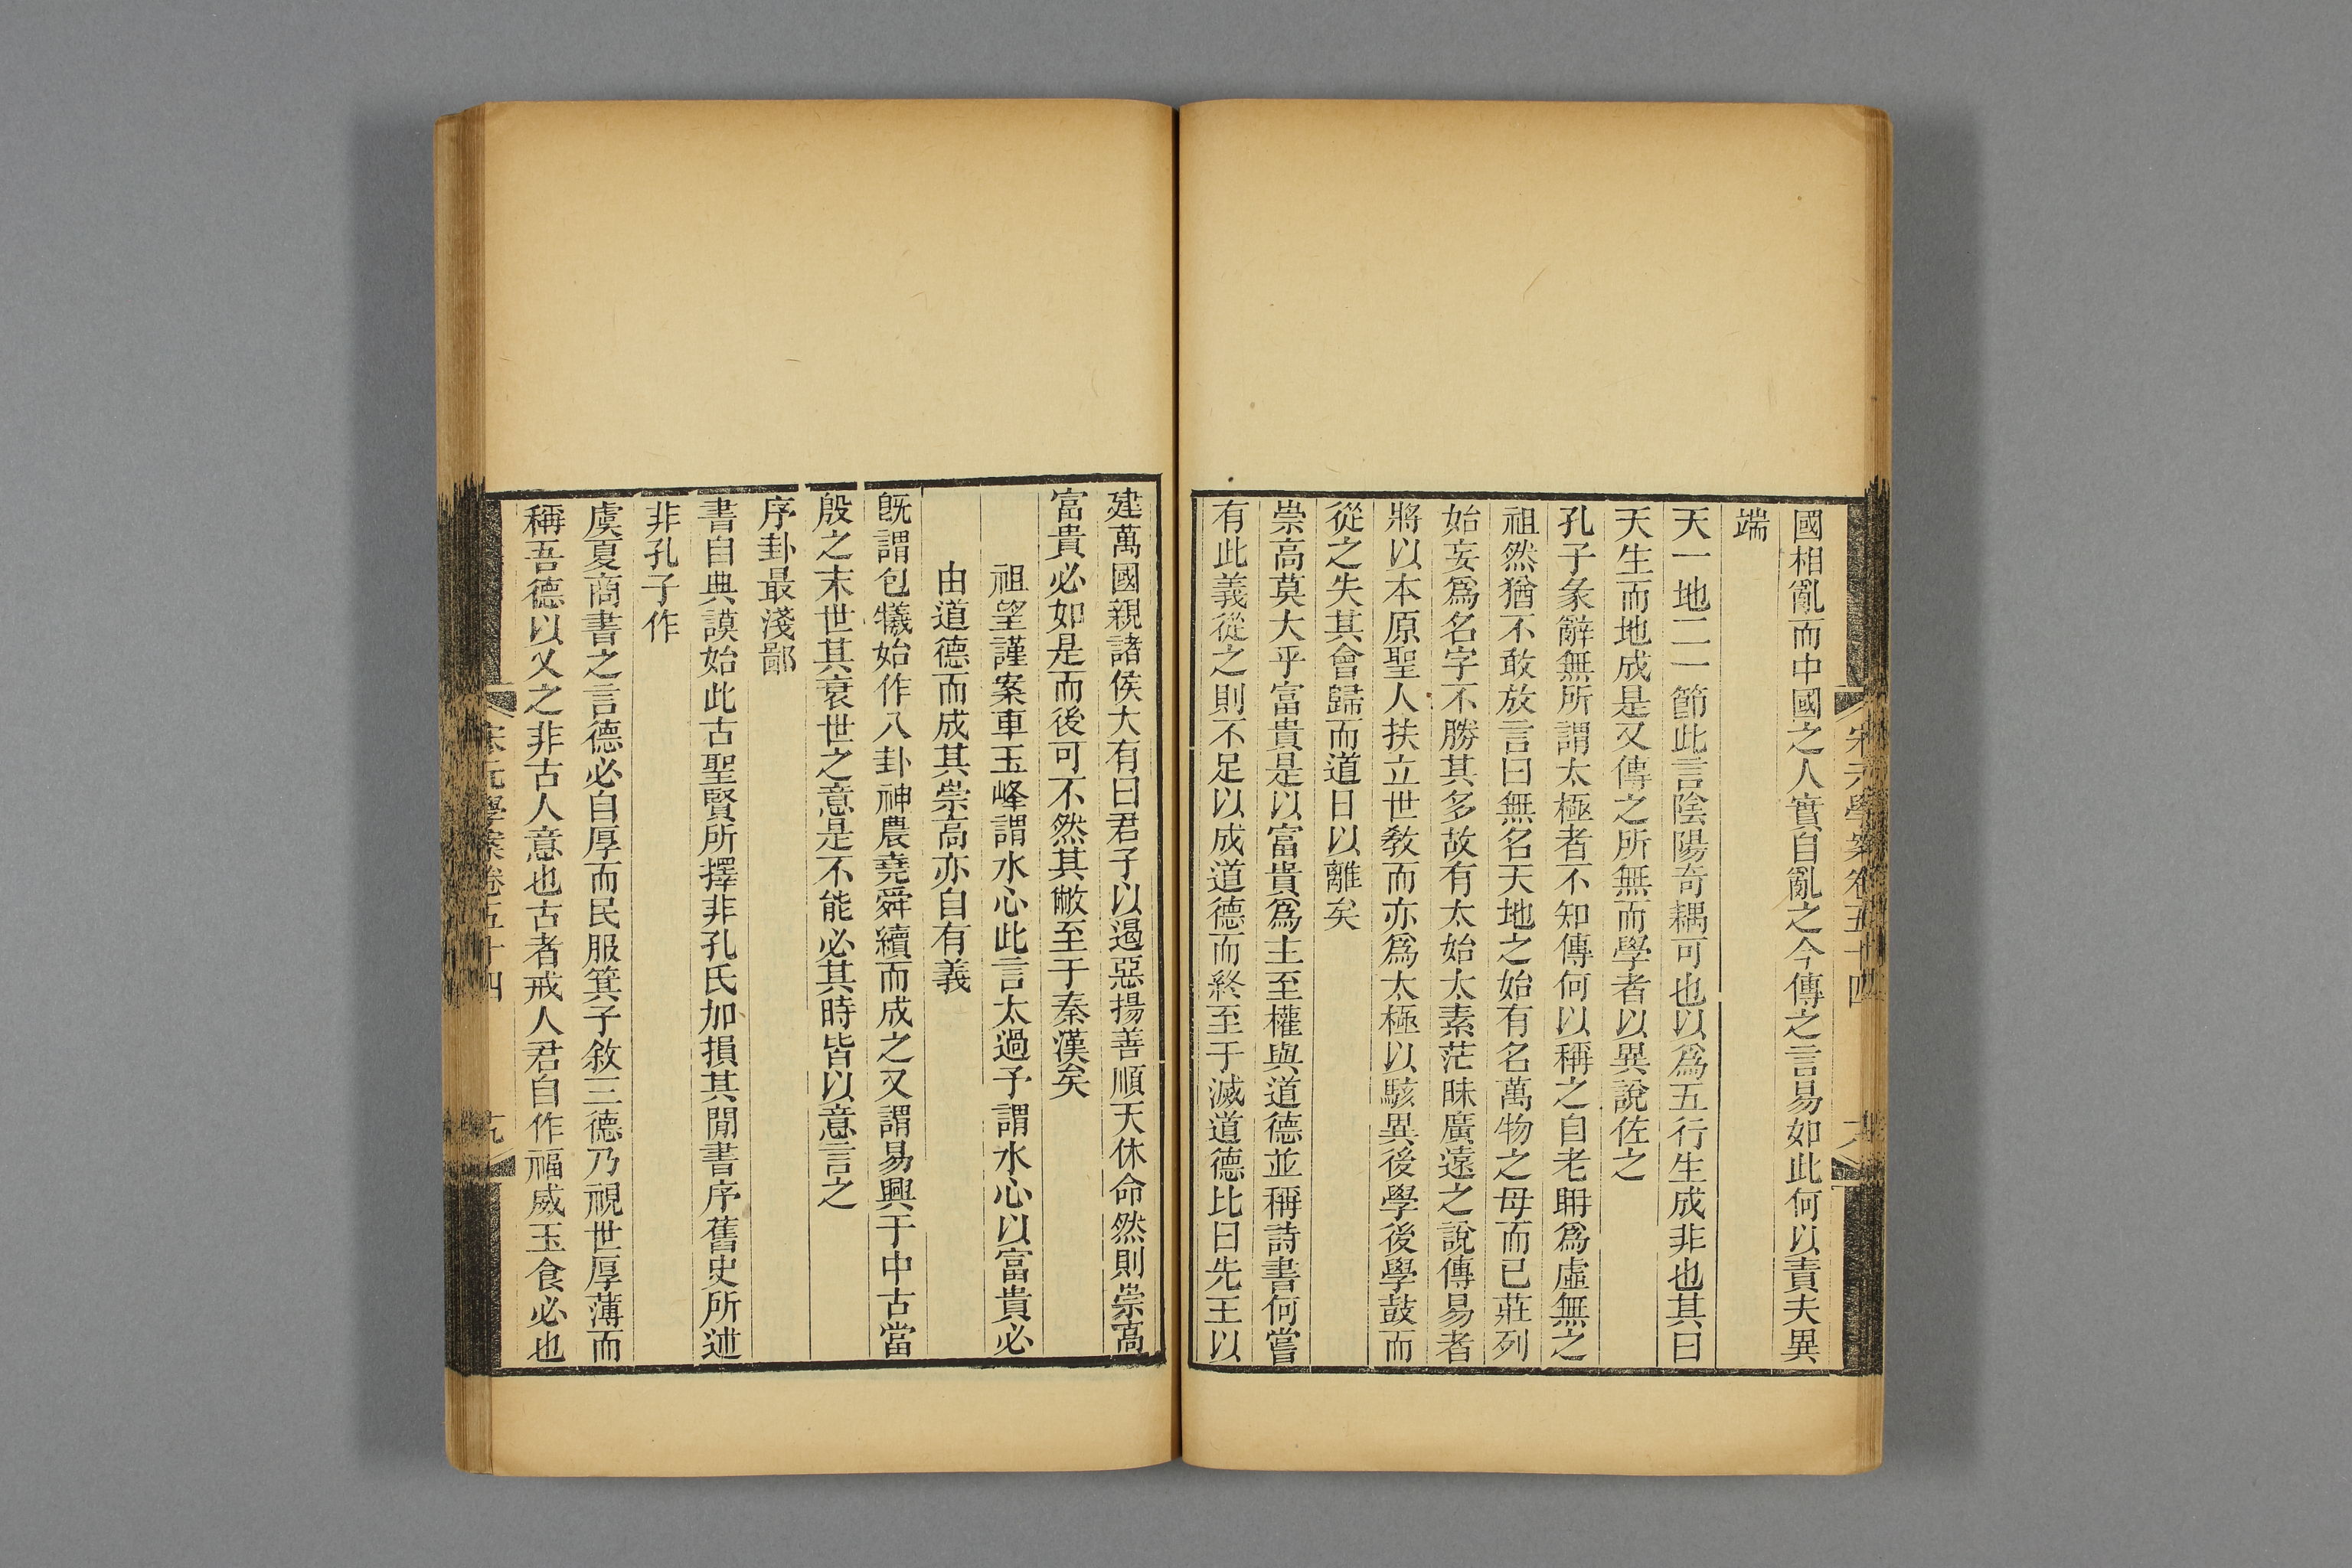 國相亂而中國之人實自亂之今傳之言易如此何以責夫異
端
天一地二一節此言陰陽奇耦可也以爲五行生成非也其曰
天生而地成是又傳之所無而學者以異說佐之
孔子彖辭無所謂太極者不知傳何以稱之自老耼爲虛無之
祖然猶不敢放言曰無名天地之始有名萬物之母而已莊列
始妄爲名字不勝其多故有太始太素茫昧廣遠之說傳易者
將以本原聖人扶立世敎而亦爲太極以駭異後學後學鼓而
從之失其會歸而道日以離矣
崇高莫大乎富貴是以富貴爲主至權與道德並稱詩書何嘗
有此義從之則不足以成道德而終至于滅道德比曰先王以
建萬國親諸侯大有曰君子以遏惡揚善順天休命然則崇高
富貴必如是而後可不然其敝至于秦漢矣
祖望謹案車玉峰謂水心此言太過予謂水心以富貴必
由道德而成其崇高亦自有義
旣謂包犧始作八卦神農堯舜續而成之又謂易興于中古當
殷之末世其衰世之意是不能必其時皆以意言之
序卦最淺鄙
書自典謨始此古聖賢所擇非孔氏加損其閒書序舊史所述
非孔子作
虞夏商書之言德必自厚而民服箕子敘三德乃視世厚薄而
稱吾德以乂之非古人意也古者戒人君自作福威玉食必也
宋元學案卷五十四